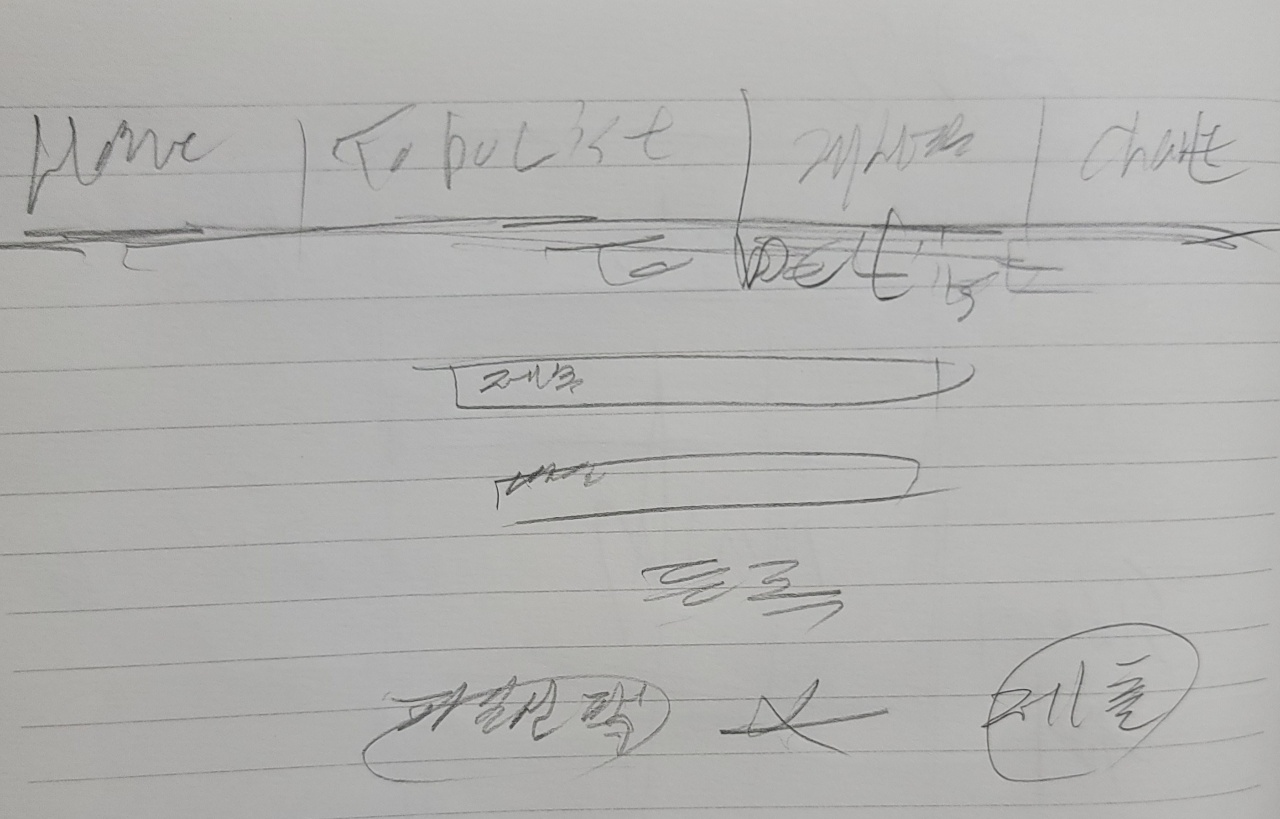 Home ToDoList 게시판 Chart
To Do List
제목
내용
등록
파일선택 제출